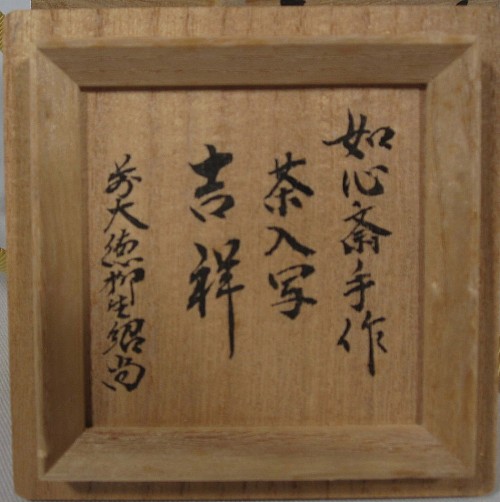 如心斎手作
茶入写
吉祥
前大徳柳生紹尚